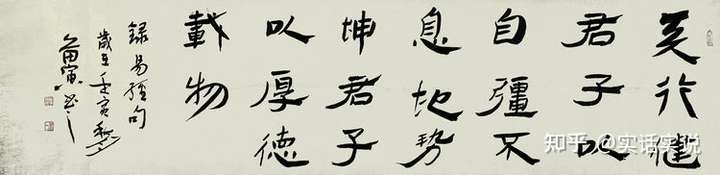 天行健
君子以
自彊不
息地势
坤君子
以厚德
載物
錄易經句
歲在壬寅
知乎 @实话实说